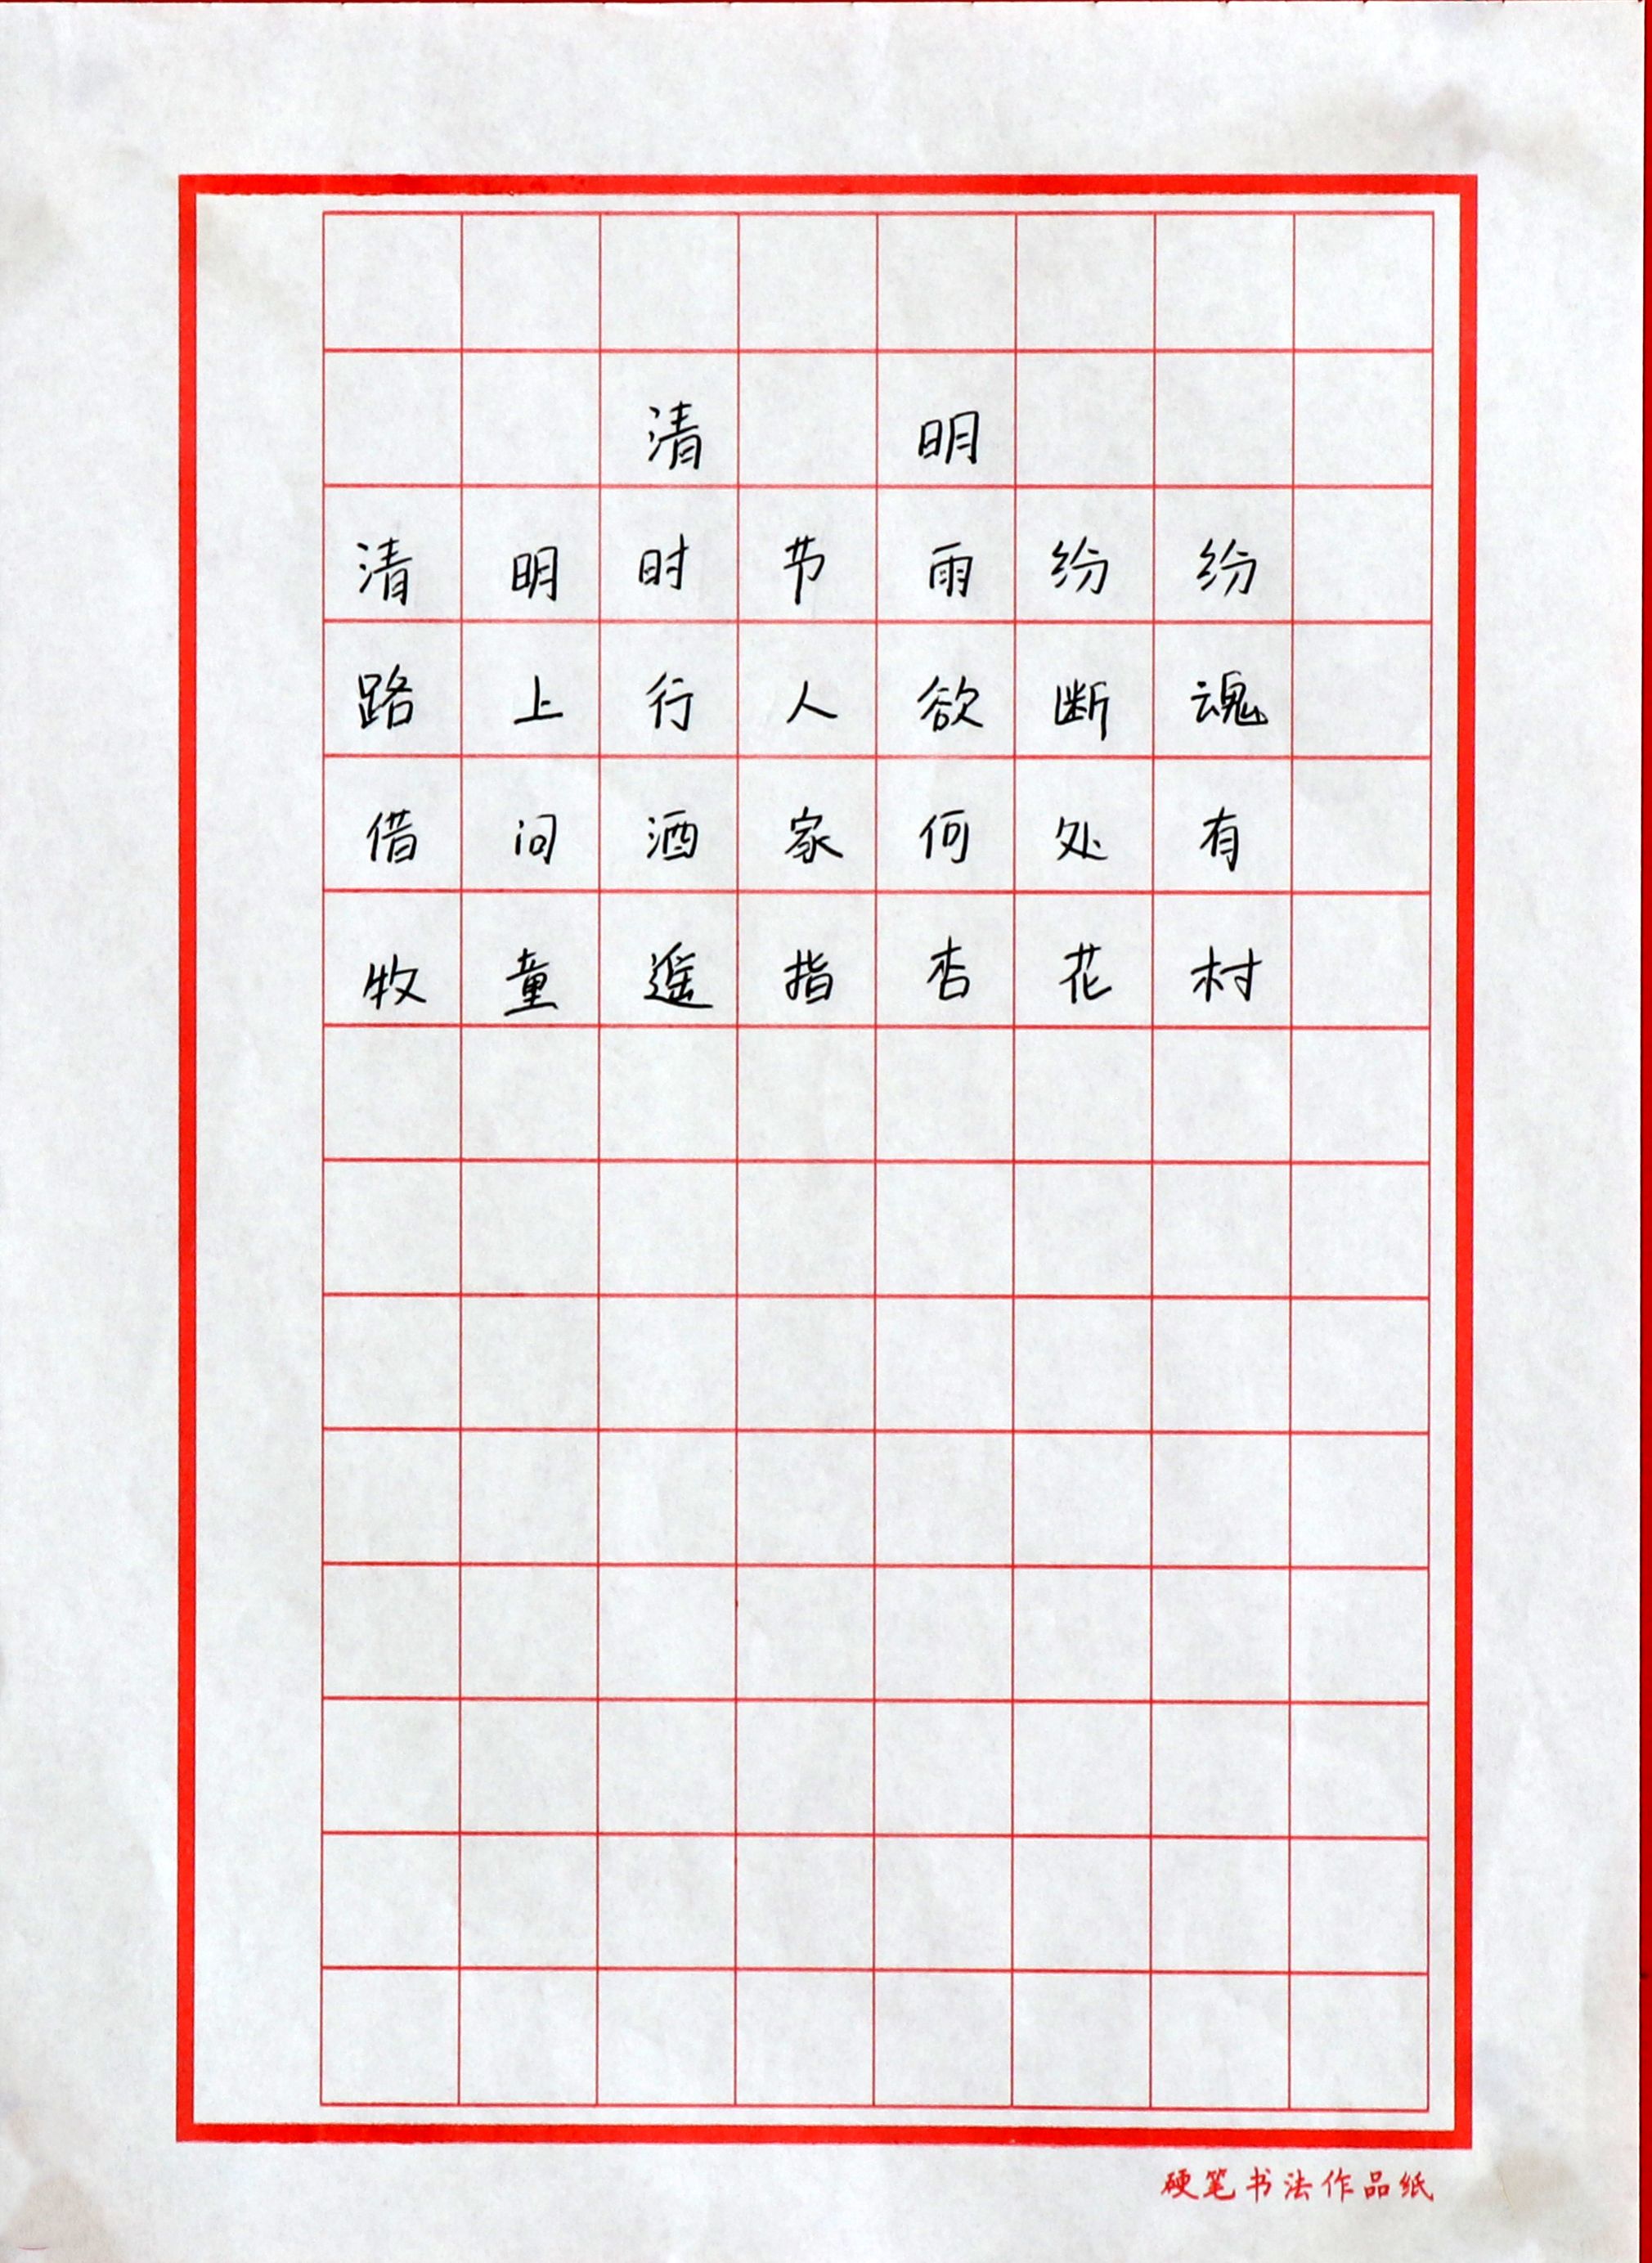 清 明
清明时节雨纷纷
路上行人欲断魂
借问酒家何处有
牧童遥指杏花村
硬笔书法作品纸